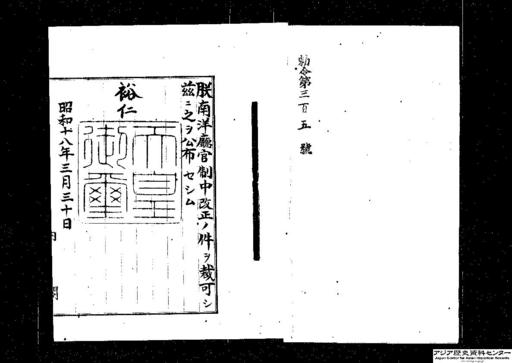 勅令第三百五號
朕南洋廳官制中改正ノ件ヲ裁可シ
茲ニ之ヲ公布セシム
裕仁
天皇
御璽
昭和十八年三月三十日
内閣
アジア歴史資料センター
Japan Center for Asian Historical Records